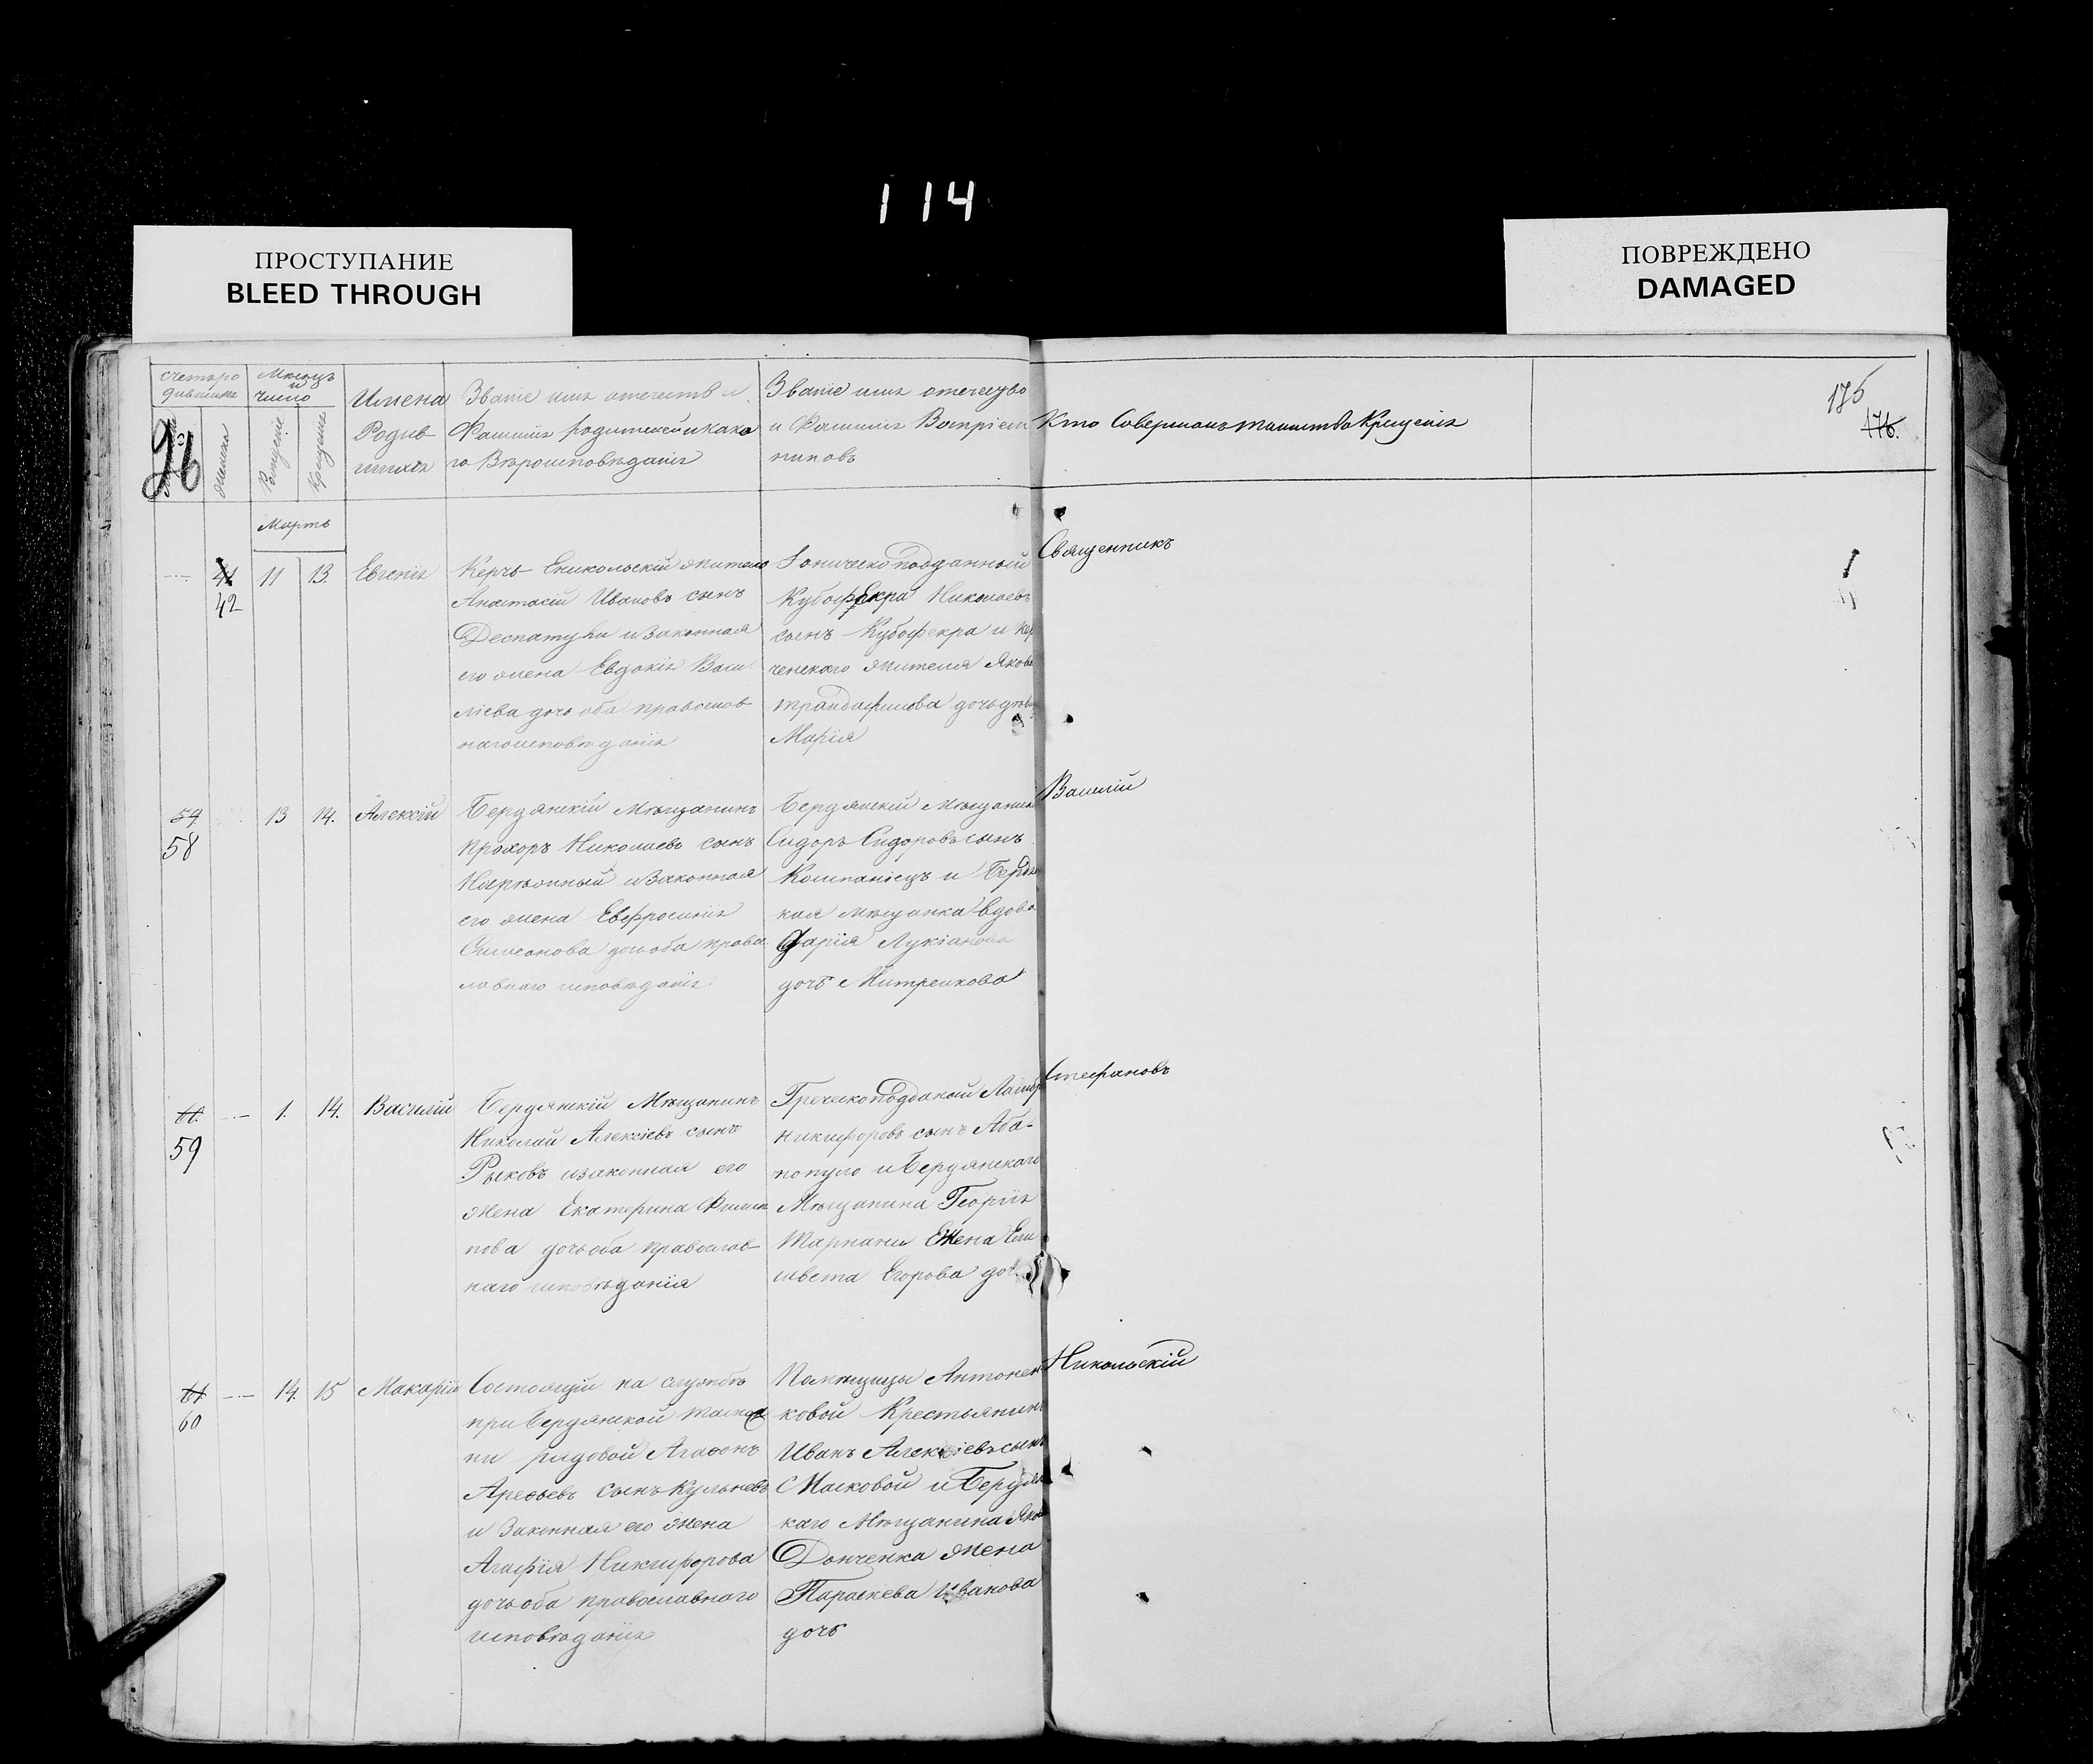 114
ПРОСТУПАНИЕ
BLEED THROUGH
ПОВРЕЖДЕНО
DAMAGED
175
176.
Мѣсяцъ
и
число
Имена
Родив-
шихся
Званіе имя отечеств и
Фамилія родителей и како
го Вѣроисповѣданія
Званіе имя отечество
и Фамилія Воспріем
никовъ
Кто Совершалъ таинство Крещенія
Мартъ
41
42
11
13.
Евгенія
Керчь-Еникольскій житель
Анастасій Ивановъ сынъ
и Законная
его жена Евдокія Васи
ліева дочь оба православ
наго исповѣданія
Іоническоподданный
Николаевъ
сынъ Кубофекра и Кер
ченскаго жителя Якова
трандафилова дочь дѣвица
Марія
Священникъ
58
13
14.
Алексій
Бердянскій Мѣщанинъ
Прохоръ Николаевъ сынъ
и Законная
его жена Евфросинія
Симеонова дочь оба право
лавнаго исповѣданія
Бердянскій Мѣщанинъ
Сидоръ Сидоровъ сынъ
Компаніецъ и Бердян
кая мѣщанка вдова
Дарія Лукіанова
дочь Митренкова
Василій
59
1.
14.
Василій
Бердянскій Мѣщанинъ
Николай Алексіевъ сынъ
Рыковъ и законная его
жена Екатерина Филип
пова дочь оба православ-
наго исповѣданія
Греческоподданой
Никифоровъ сынъ Аба-
популо и Бердянскаго
Мѣщанина Георгія
Жена Ели
савета Егорова дочь
Стефановъ
61
60
14.
15
Макарій
Состоящій на службѣ
при Бердянской тамож
ни рядовой Агафонъ
сынъ
и Законная его жена
Агафія Никифорова
дочь оба православнаго
исповѣданія
Помѣщицы Антонен
ковой Крестьянинъ
Иванъ Алексіевъ сынъ
и Бердян
каго Мѣщанина Якова
Донченка жена
Параскева Иванова
дочь
Никольскій